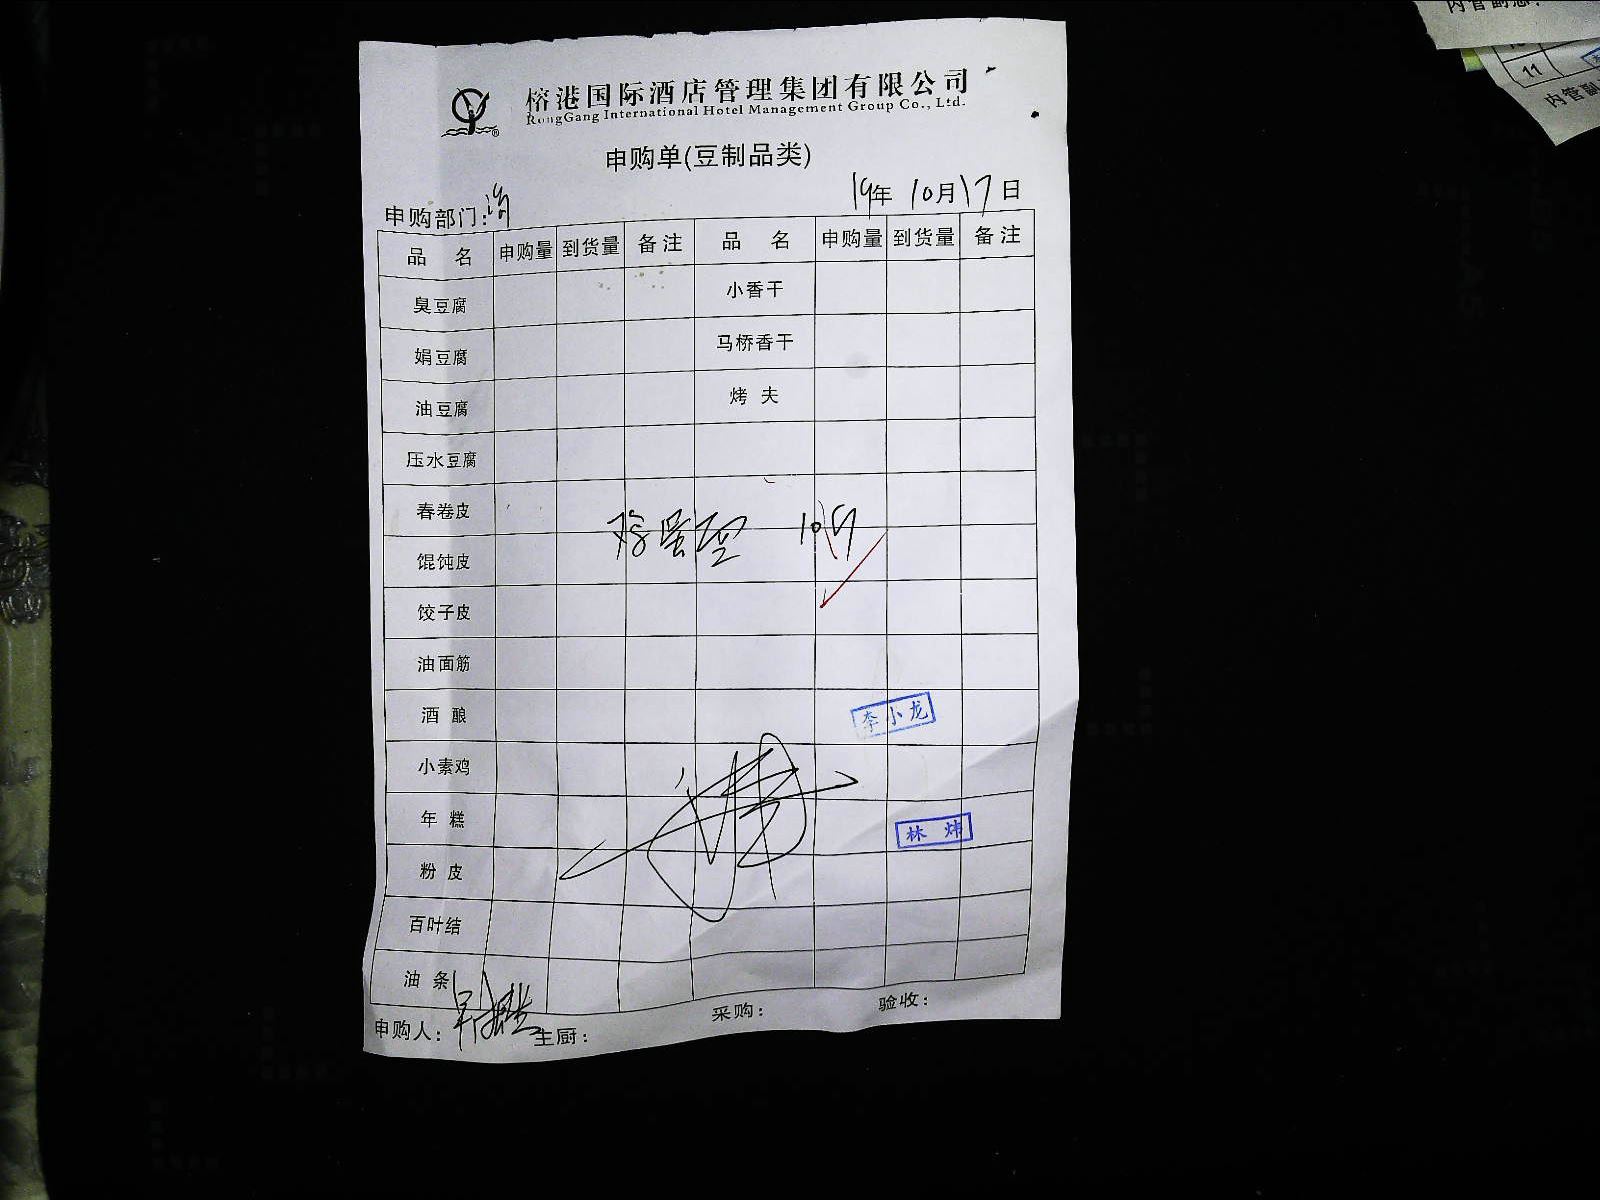 内管副总:
11
内管副
榕港国际酒店管理集团有限公司
RongGang International Hotel Management Group Co., Ltd.
申购单(豆制品类)
申购部门: 19年 10月17日
品 名 申购量 到货量 备注 品 名 申购量 到货量 备注
臭豆腐 小香干
娟豆腐 马桥香干
油豆腐 烤 夫
压水豆腐
春卷皮
10
馄饨皮
饺子皮
油面筋
酒 酿 李小龙
小素鸡
年 糕 林 炜
粉 皮
百叶结
油 条
申购人: 主厨: 采购: 验收: